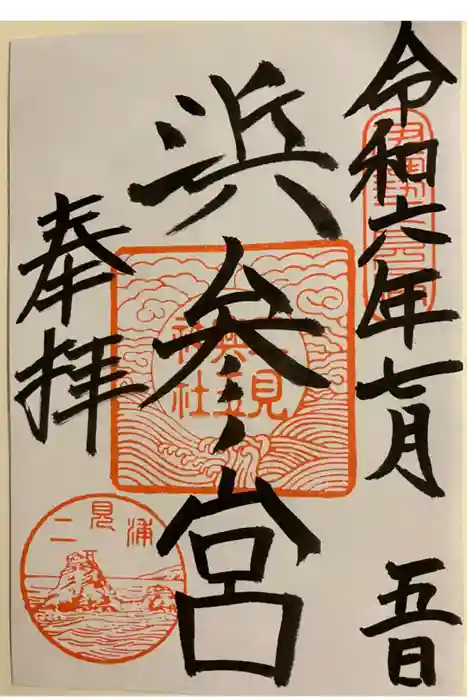 令和六年七月五日
浜参宮
二見
興玉
神社
奉拝
二見浦